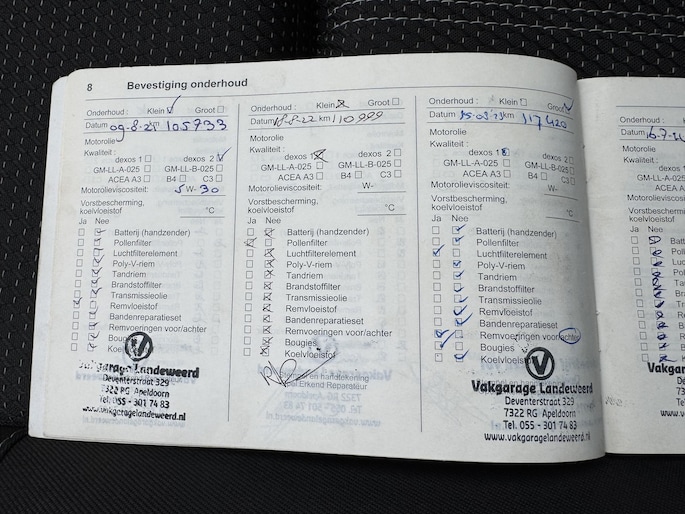 8 Bevestiging onderhoud
Onderhoud : Klein Groot
Datum 09-8-21 km 105733
Motorolie
Kwaliteit :
dexos 1 dexos 2
GM-LL-A-025 GM-LL-B-025
ACEA A3 B4 C3
Motorolieviscositeit: 5 W- 30
Vorstbescherming,
koelvloeistof °C
Ja Nee
Batterij (handzender)
Pollenfilter
Luchtfilterelement
Poly-V-riem
Tandriem
Brandstoffilter
Transmissieolie
Remvloeistof
Bandenreparatieset
Remvoeringen voor/achter
Vakgarage Landeweerd
Deventerstraat 329
7322 RG Apeldoorn
Tel. 055 - 301 74 83
www.vakgaragelandeweerd.nl
Onderhoud : Klein Groot
Datum 18-8-22 km 110999
Motorolie
Kwaliteit :
dexos 1 dexos 2
GM-LL-A-025 GM-LL-B-025
ACEA A3 B4 C3
Motorolieviscositeit: W-
Vorstbescherming,
koelvloeistof °C
Ja Nee
Batterij (handzender)
Pollenfilter
Luchtfilterelement
Poly-V-riem
Tandriem
Brandstoffilter
Transmissieolie
Remvloeistof
Bandenreparatieset
Remvoeringen voor/achter
Bougies
Koelvloeistof
en handtekening
Opel Erkend Reparateur
Onderhoud : Klein Groot
Datum km 117420
Motorolie
Kwaliteit :
dexos 1 dexos 2
GM-LL-A-025 GM-LL-B-025
ACEA A3 B4 C3
Motorolieviscositeit: W-
Vorstbescherming,
koelvloeistof °C
Ja Nee
Batterij (handzender)
Pollenfilter
Luchtfilterelement
Poly-V-riem
Tandriem
Brandstoffilter
Transmissieolie
Remvloeistof
Bandenreparatieset
Remvoeringen voor/achter
Bougies
Koelvloeistof
Vakgarage Landeweerd
Deventerstraat 329
7322 RG Apeldoorn
Tel. 055 - 301 74 83
www.vakgaragelandeweerd.nl
Onderhoud
Datum
Motorolie
Kwaliteit :
Motorolieviscositeit
Vorstbescherming,
koelvloeistof
Ja Nee